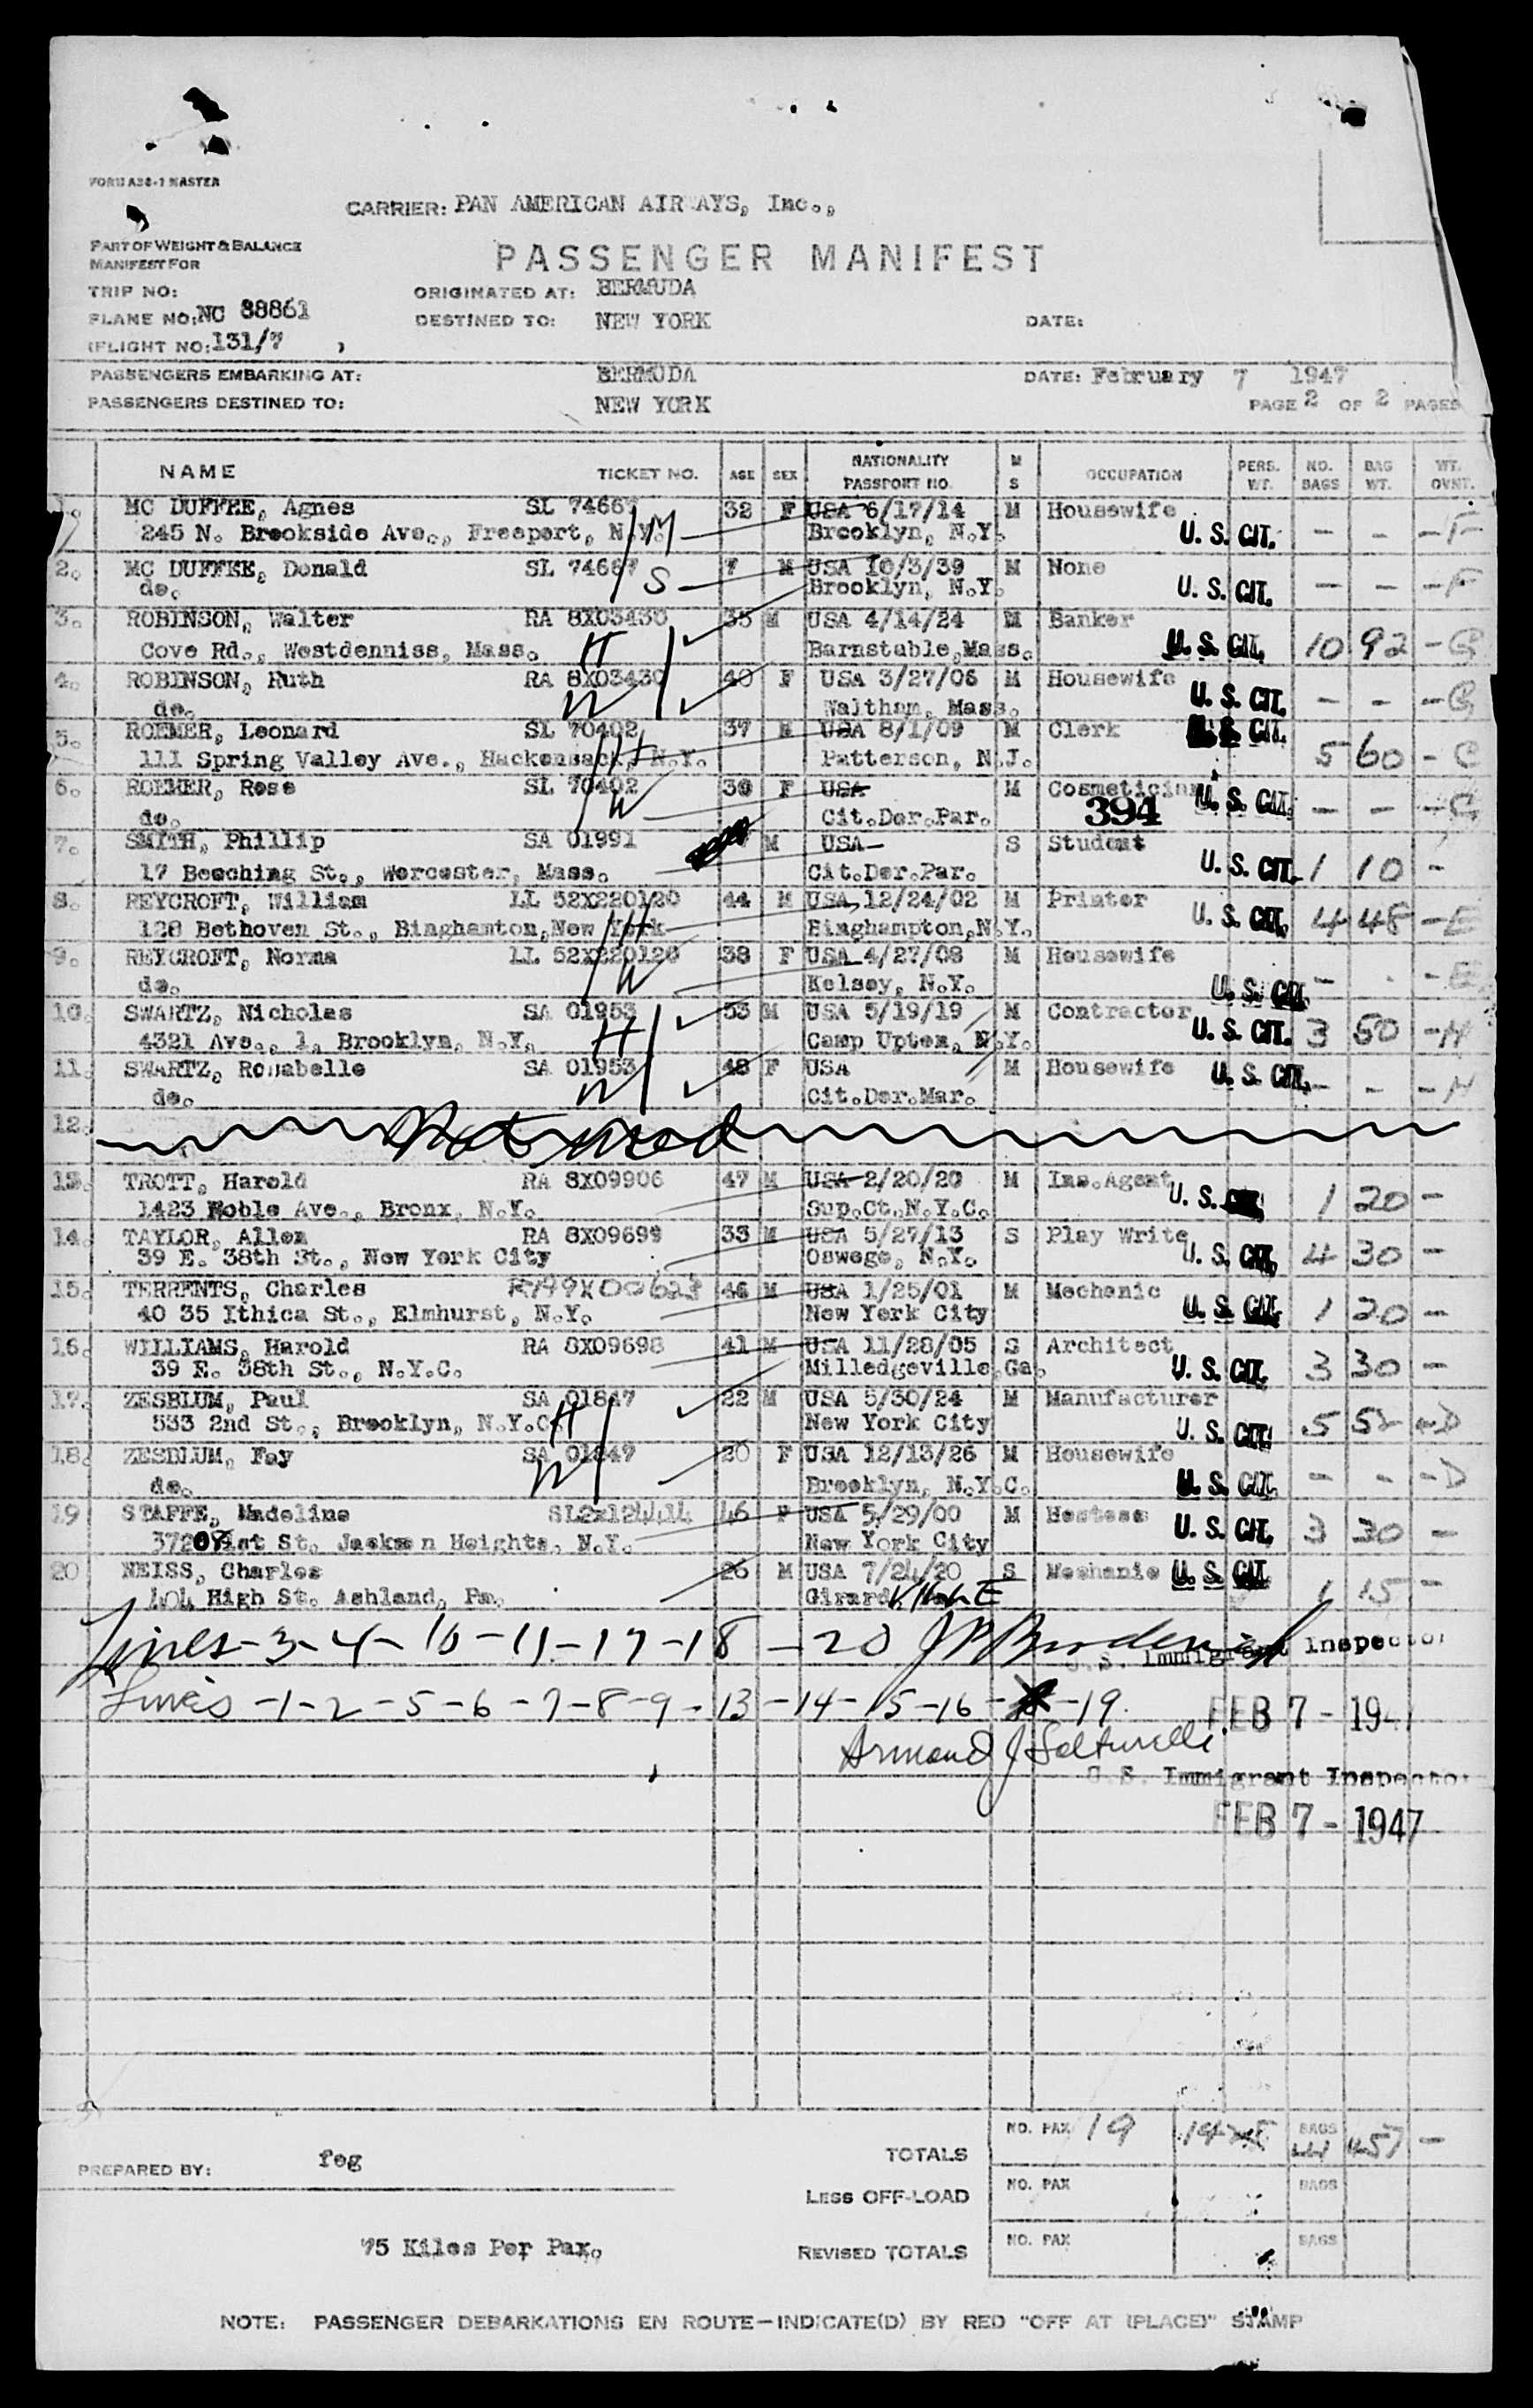 FORM A36-1 MASTER
CARRIER: PAN AMERICAN AIR AYS, Inc.,
PART OF WEIGHT & BALANCE
MANIFEST FOR
PASSENGER MANIFEST
TRIP NO:
ORIGINATED AT: BERMUDA
PLANE NO: NC 88861
DESTINED TO: NEW YORK
DATE:
(FLIGHT NO: 131/7 )
PASSENGERS EMBARKING AT: BERMUDA
DATE: February 7 1947
PASSENGERS DESTINED TO: NEW YORK
PAGE 2 OF 2 PAGES
NAME TICKET NO. AGE SEX NATIONALITY PASSPORT NO. M S OCCUPATION PERS. WT. NO. BAGS BAG WT. WT. OVNT.
1. MC DUFFEE, Agnes SL 74667 32 F USA 6/17/14 M Housewife
245 N. Brookside Ave., Freeport, N.Y. M Brooklyn, N.Y. U. S. CIT. - - - F
2. MC DUFFEE, Donald SL 74667 7 M USA 10/3/39 M None
do. S Brooklyn, N.Y. U. S. CIT. - - - F
3. ROBINSON, Walter RA 8X03430 35 M USA 4/14/24 M Banker
Cove Rd., Westdenniss, Mass. H Barnstable, Mass. U. S. CIT. 10 92 - G
4. ROBINSON, Ruth RA 8X03430 40 F USA 3/27/06 M Housewife
do. W Waltham, Mass. U. S. CIT. - - - G
5. ROEMER, Leonard SL 70402 37 M USA 8/1/09 M Clerk U. S. CIT.
111 Spring Valley Ave., Hackensack, N.Y. H Patterson, N.J. 5 60 - C
6. ROEMER, Rose SL 70402 39 F USA M Cosmetician U. S. CIT. - - - C
do. W Cit.Der.Par. 394
7. SMITH, Phillip SA 01991 M USA S Student
17 Beeching St., Worcester, Mass. Cit.Der.Par. U. S. CIT. 1 10 -
8. REYCROFT, William LL 52X220120 44 M USA 12/24/02 M Printer
128 Bethoven St., Binghamton, New York H Binghampton, N.Y. U. S. CIT. 4 48 - E
9. REYCROFT, Norma LL 52X220120 38 F USA 4/27/08 M Housewife
do. W Kelsey, N.Y. U. S. CIT. - - - E
10. SWARTZ, Nicholas SA 01953 53 M USA 5/19/19 M Contractor
4321 Ave., 1, Brooklyn, N.Y. H Camp Upton, N.Y. U. S. CIT. 3 50 - H
11. SWARTZ, Rosabelle SA 01953 48 F USA M Housewife U. S. CIT. - - - H
do. W Cit.Der.Mar.
12. Not used
13. TROTT, Harold RA 8X09906 47 M USA 2/20/20 M Ins.Agent
1423 Noble Ave., Bronx, N.Y. Sup.Ct.N.Y.C. U. S. CIT. 1 20 -
14. TAYLOR, Allen RA 8X09699 33 M USA 5/27/13 S Play Write
39 E. 38th St., New York City Oswego, N.Y. U. S. CIT. 4 30 -
15. TERRENTS, Charles 46 M USA 1/25/01 M Mechanic
40 35 Ithica St., Elmhurst, N.Y. New York City U. S. CIT. 1 20 -
16. WILLIAMS, Harold RA 8X09698 41 M USA 11/28/05 S Architect
39 E. 38th St., N.Y.C. Milledgeville, Ga. U. S. CIT. 3 30 -
17. ZESBLUM, Paul SA 01847 22 M USA 5/30/24 M Manufacturer
533 2nd St., Brooklyn, N.Y.C. H New York City U. S. CIT. 5 52 - D
18. ZESBLUM, Fay SA 01847 20 F USA 12/13/26 M Housewife
do. W Brooklyn, N.Y.C. U. S. CIT. - - - D
19 STAFFE, Madeline SL2X12444 46 F USA 5/29/00 M Hostess
St. Jackson Heights, N.Y. New York City U. S. CIT. 3 30 -
20 NEISS, Charles 26 M USA 7/24/20 S Mechanic U. S. CIT.
404 High St. Ashland, Pa. Girardville 1 15 -
Lines - 3 - 4 - 10 - 11 - 17 - 18 - 20
U.S. Immigrant Inspector
Lines - 1 - 2 - 5 - 6 - 7 - 8 - 9 - 13 - 14 - 15 - 16 - 19. FEB 7 - 194
Armand J
U.S. Immigrant Inspector
FEB 7 - 1947
TOTALS NO. PAX 19 1425 BAGS 44 457 -
PREPARED BY: feg
LESS OFF-LOAD NO. PAX BAGS
75 Kilos Per Pax.
REVISED TOTALS NO. PAX BAGS
NOTE: PASSENGER DEBARKATIONS EN ROUTE—INDICATE(D) BY RED "OFF AT (PLACE)" STAMP